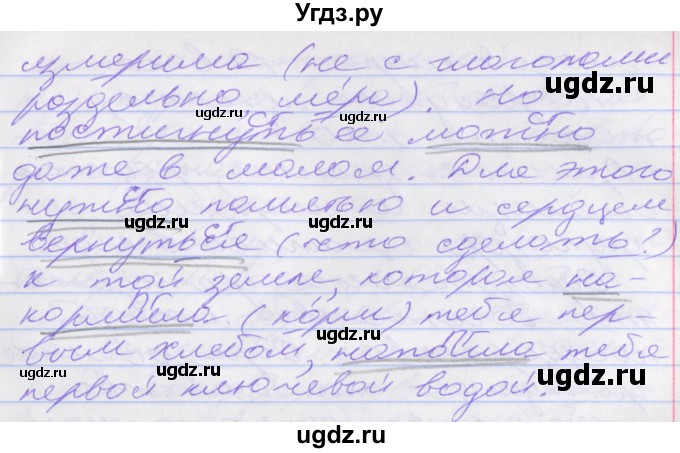 Угдз.ру
измерима (не с глаголами
раздельно, мера). Но
постигнуть ее можно
даже в малом. Для этого
нужно памятью и сердцем
вернуться (что сделать?)
к той земле, которая на-
кормила (корм) тебя пер-
вым хлебом, напоила тебя
первой ключевой водой.
ugdz.ru
ugdz.ru
ugdz.ru
ugdz.ru
ugdz.ru
ugdz.ru
ugdz.ru
ugdz.ru
ugdz.ru
ugdz.ru
ugdz.ru
ugdz.ru